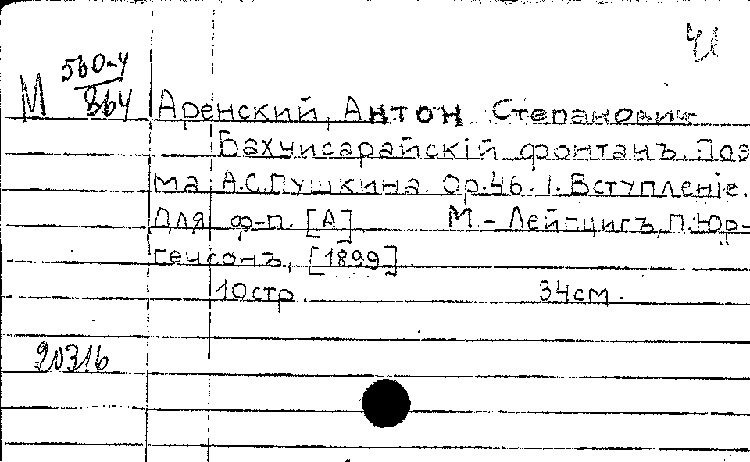 И
М 560-4
864
Аренский, Антон Степанович
Бахчисарайскій фонтанъ. Поэ-
ма А.С.Пушкина. Op.46. 1. Вступленіе.
Для ф-п. [А] М. - Лейпцигъ, П.Юр-
генсонъ, [1899]
10стр. 34см.
20316